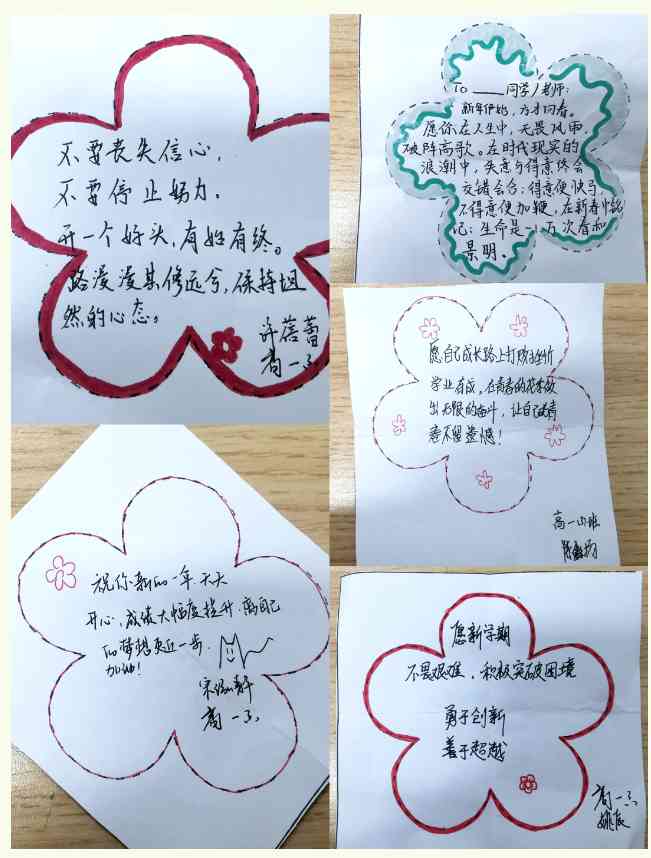 不要丧失信心，
不要停止努力。
开一个好头，有始有终。
路漫漫其修远兮，保持坦
然的心态。
许蓓蕾
高一
To ____同学/老师：
新年伊始，万才同春。
愿你在人生中，无畏风雨，
破阵高歌。在时代现实的
浪潮中，失意与得意终会
交错会合；得意便快马，
不得意便加鞭，在新春中铭
记：生命是一万次春和
景明。
愿自己成长路上打败
学业有成，在青春的花季放
出无限的奋斗，让自己青
春不留遗憾！
高一 班
祝你新的一年天天
开心，成绩大幅度提升，离自己
的梦想更近一步，
加油！
高一
愿新学期
不畏艰难，积极突破困境
勇于创新
善于超越
高一
姚